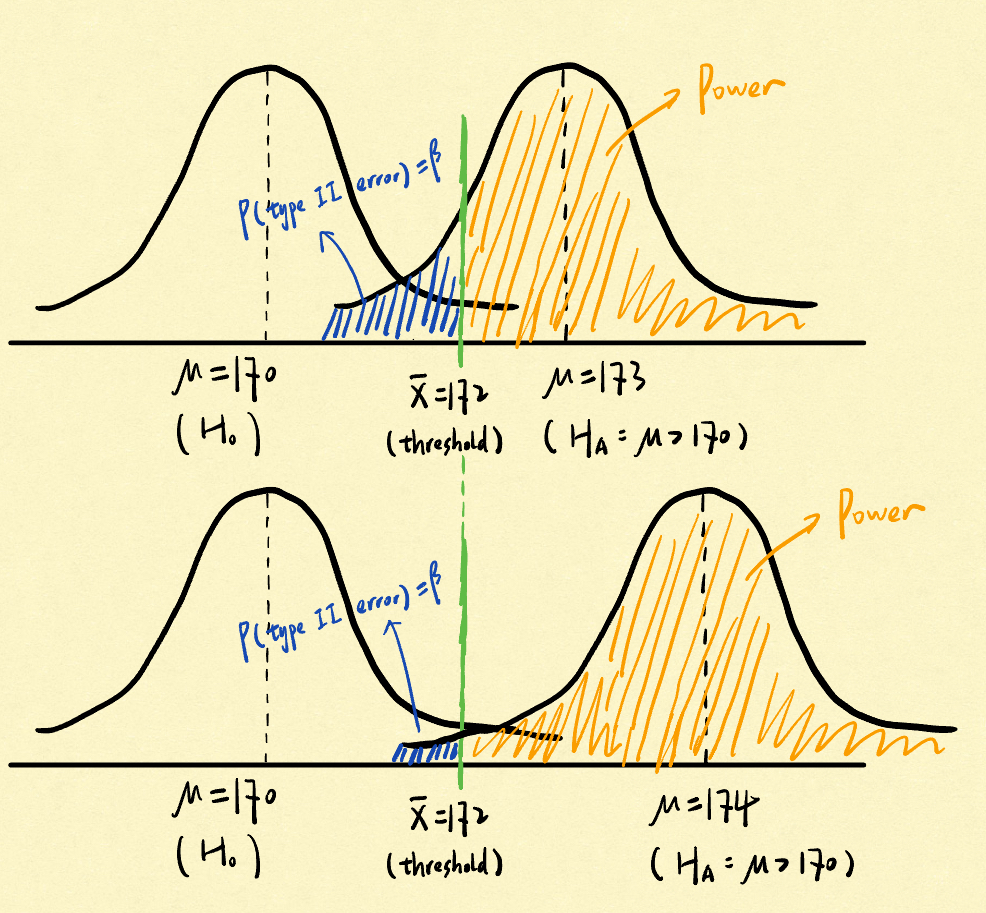 Power
P(type II error) = β
μ = 170
(H₀)
X̄ = 172
(threshold)
μ = 173
(H_A = μ > 170)
Power
P(type II error) = β
μ = 170
(H₀)
X̄ = 172
(threshold)
μ = 174
(H_A = μ > 170)